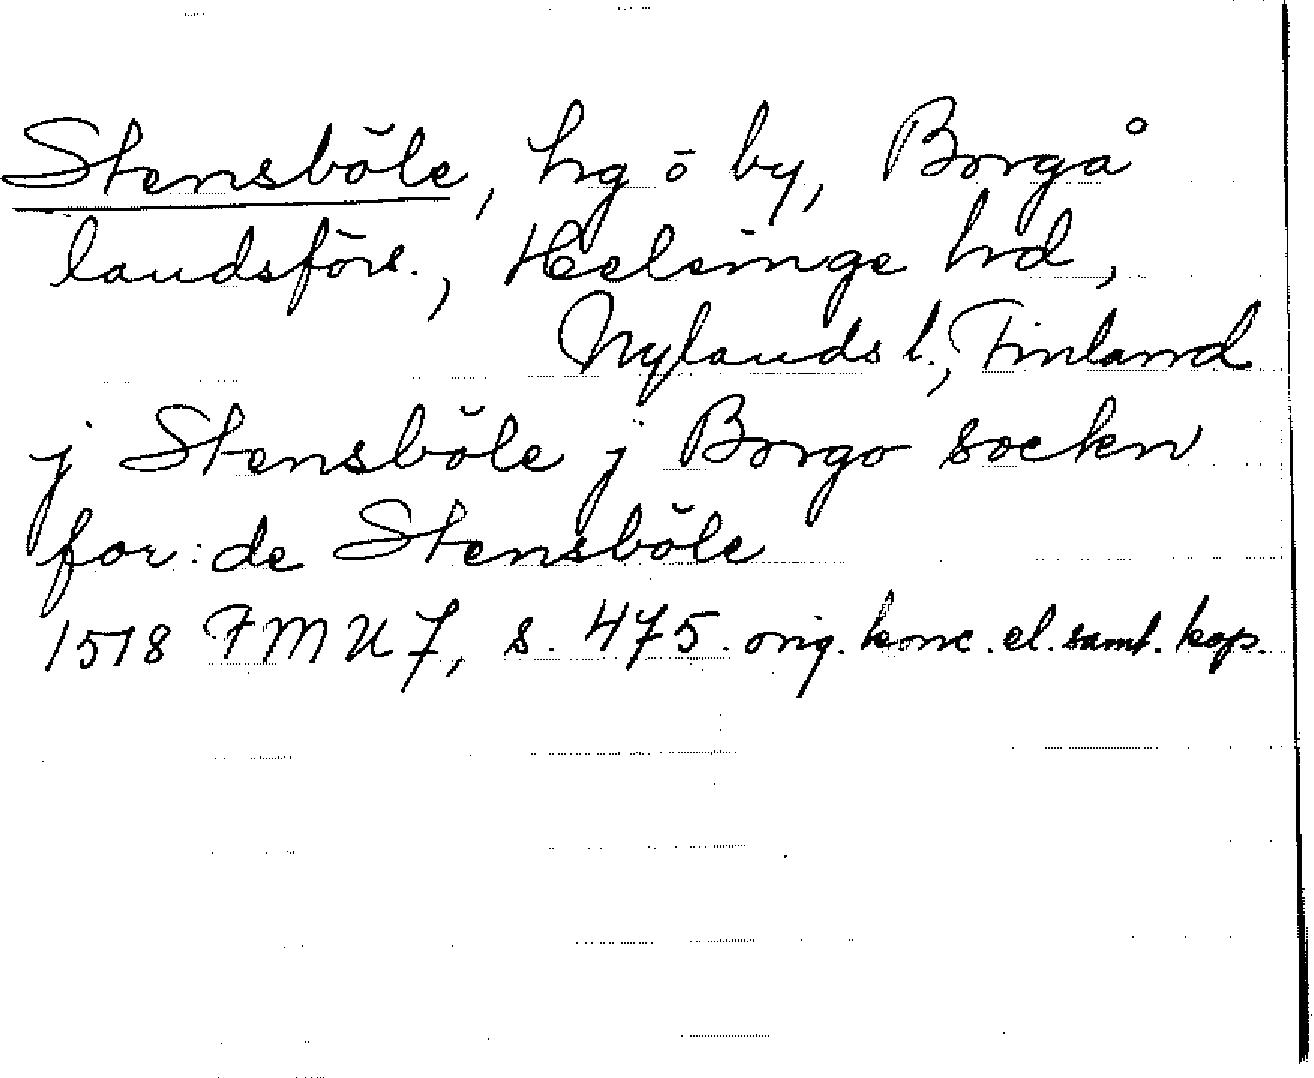 Stensböle, hg o by, Borgå
landsförs., Helsinge hd,
Nylands l., Finland
j Stensböle j Borgo sockn
for: de Stensböle
1518 FMU 7, s. 475. orig. konc. el. samt. kop.